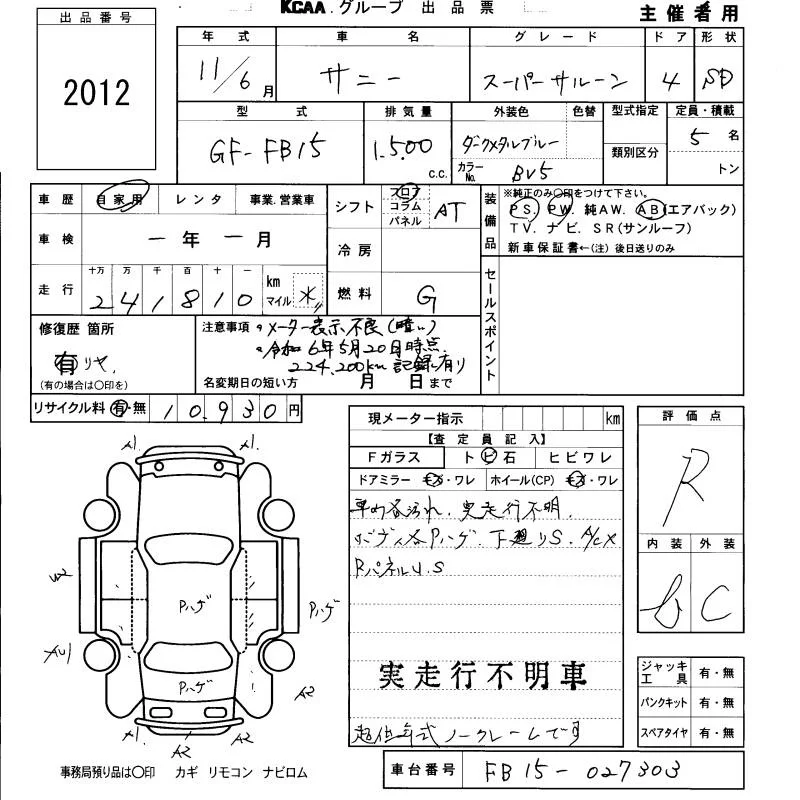 KCAA.グループ 出品票
主催者用
出品番号
2012
年式 車名 グレード ドア 形状
11/6月 サニー スーパーサルーン 4 SD
型式 排気量 外装色 色替 型式指定 定員・積載
GF-FB15 1,500 c.c. ダークメタルブルー 5名
カラーNo. BV5 類別区分 トン
車歴 自家用 レンタ 事業.営業車
シフト フロア コラム パネル AT
装備品 ※純正のみ○印をつけて下さい。
PS. PW. 純AW. AB(エアバック)
TV. ナビ. SR(サンルーフ)
新車保証書←(注)後日送りのみ
車検 ー年ー月
冷房
走行 十万 万 千 百 十 一 km マイル
241810 ＊
燃料 G
セールスポイント
修復歴 箇所
有 リヤ.
(有の場合は○印を)
注意事項 ・メーター表示不良(暗い)
・令和6年5月20日時点.
224,200km記録有り
名変期日の短い方 月 日まで
リサイクル料 有・無 10,930円
現メーター指示 km
【査定員記入】
Fガラス トビ石 ヒビワレ
ドアミラー キズ・ワレ ホイール(CP) キズ・ワレ
実走行不明.
ボディ各Pハゲ. 下廻りS. A/C×
RパネルU.S
実走行不明車
超低年式 ノークレームです
評価点
R
内装 外装
C
ジャッキ工具 有・無
パンクキット 有・無
スペアタイヤ 有・無
A1 A1
U2
Pハゲ
Pハゲ
Pハゲ
A2
A1 A2 A2
事務局預り品は○印 カギ リモコン ナビロム
車台番号 FB15-027303